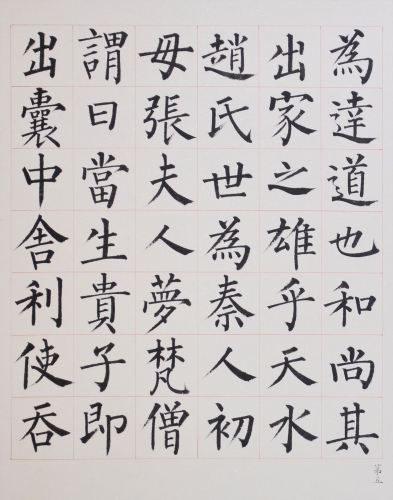 為達道也和尚其
出家之雄乎天水
趙氏世為秦人初
母張夫人夢梵僧
謂曰當生貴子即
出囊中舍利使吞
第五